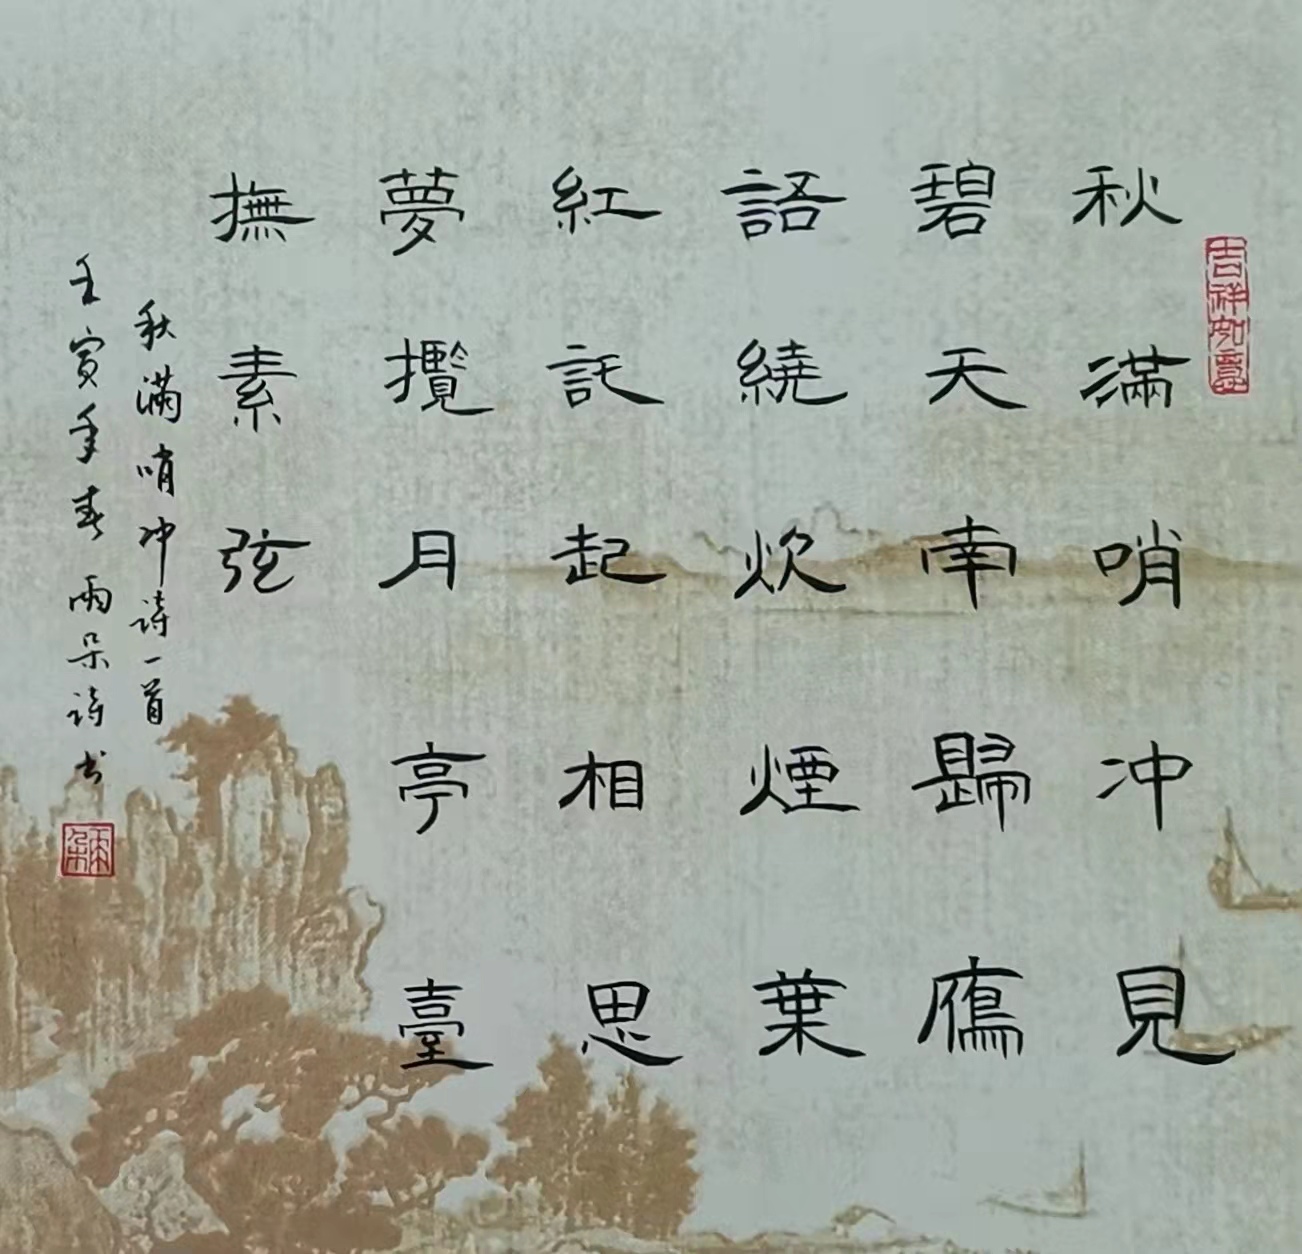 吉祥如意
秋滿哨冲見
碧天南歸鴈
語繞炊煙葉
紅託起相思
夢攬月亭臺
撫素弦
秋滿哨冲诗一首
壬寅年春雨朵诗书
雨朵